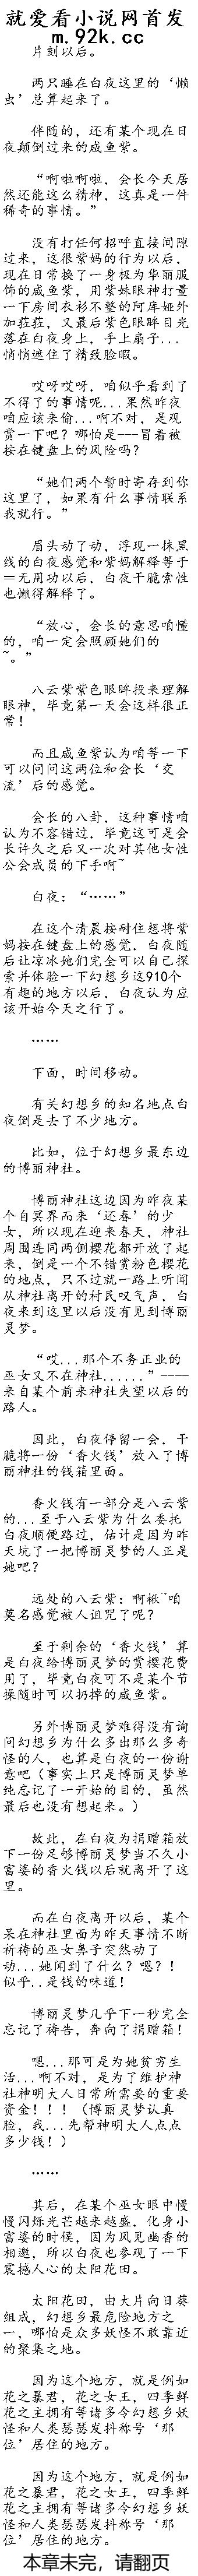 就爱看小说网首发
m.92k.cc
片刻以后。
两只睡在白夜这里的‘懒
虫’总算起来了。
伴随的，还有某个现在日
夜颠倒过来的咸鱼紫。
“啊啦啊啦，会长今天居
然还能这么精神，这真是一件
稀奇的事情。”
没有打任何招呼直接间隙
过来，这很紫妈的行为以后，
现在日常换了一身极为华丽服
饰的咸鱼紫，用紫妹眼神打量
一下房间衣衫不整的阿库娅外
加菈菈，又最后紫色眼眸目光
落在白夜身上，手上扇子...
悄悄遮住了精致脸暇。
哎呀哎呀，咱似乎看到了
不得了的事情呢...果然昨夜
咱应该来偷...啊不对，是观
赏一下吧？哪怕是---冒着被
按在键盘上的风险吗？
“她们两个暂时寄存到你
这里了，如果有什么事情联系
我就行。”
眉头动了动，浮现一抹黑
线的白夜感觉和紫妈解释等于
＝无用功以后，白夜干脆索性
也懒得解释了。
“放心，会长的意思咱懂
的，咱一定会照顾她们的
~。”
八云紫紫色眼眸投来理解
眼神，毕竟第一天会这样很正
常！
而且咸鱼紫认为咱等一下
可以问问这两位和会长‘交
流’后的感觉。
会长的八卦，这种事情咱
认为不容错过，毕竟这可是会
长许久之后又一次对其他女性
公会成员的下手啊~
白夜：“……”
在这个清晨按耐住想将紫
妈按在键盘上的感觉，白夜随
后让凉冰她们完全可以自己探
索并体验一下幻想乡这910个
有趣的地方以后，白夜认为应
该开始今天之行了。
……
下面，时间移动。
有关幻想乡的知名地点白
夜倒是去了不少地方。
比如，位于幻想乡最东边
的博丽神社。
博丽神社这边因为昨夜某
个自冥界而来‘还春’的少
女，所以现在迎来春天，神社
周围连同两侧樱花都开放了起
来，倒是一个不错赏粉色樱花
的地点，只不过就一路上听闻
从神社离开的村民叹气声，白
夜来到这里以后没有见到博丽
灵梦。
“哎...那个不务正业的
巫女又不在神社......”----
来自某个前来神社失望以后的
路人。
因此，白夜停留一会，干
脆将一份‘香火钱’放入了博
丽神社的钱箱里面。
香火钱有一部分是八云紫
的...至于八云紫为什么委托
白夜顺便路过，估计是因为昨
天坑了一把博丽灵梦的人正是
她吧？
远处的八云紫：啊楸~咱
莫名感觉被人诅咒了呢？
至于剩余的‘香火钱’算
是白夜给博丽灵梦的赏樱花费
用了，毕竟白夜可不是某个节
操随时可以扔掉的咸鱼紫。
另外博丽灵梦难得没有询
问幻想乡为什么多出那么多奇
怪的人，也算是白夜的一份谢
意吧（事实上只是博丽灵梦单
纯忘记了一开始的目的，虽然
最后也没有想起来。）
故此，在白夜为捐赠箱放
下一份足够博丽灵梦当不久小
富婆的香火钱以后就离开了这
里。
而在白夜离开以后，某个
呆在神社里面为昨天事情不断
祈祷的巫女鼻子突然动了
动...她闻到了什么？嗯？！
似乎..是钱的味道！
博丽灵梦几乎下一秒完全
忘记了祷告，奔向了捐赠箱！
嗯...那可是为她贫穷生
活...啊不对，是为了维护神
社神明大人日常所需要的重要
资金！！！（博丽灵梦认真
脸，我...先帮神明大人点点
多少钱！）
……
其后，在某个巫女眼中慢
慢闪烁光芒越来越盛，化身小
富婆的时候，因为风见幽香的
相邀，所以白夜也参观了一下
震撼人心的太阳花田。
太阳花田，由大片向日葵
组成，幻想乡最危险地方之
一，哪怕是众多妖怪不敢靠近
的聚集之地。
因为这个地方，就是例如
花之暴君，花之女王，四季鲜
花之主拥有等诸多令幻想乡妖
怪和人类瑟瑟发抖称号‘那
位’居住的地方。
因为这个地方，就是例如
花之暴君，花之女王，四季鲜
花之主拥有等诸多令幻想乡妖
怪和人类瑟瑟发抖称号‘那
位’居住的地方。
本章未完，请翻页